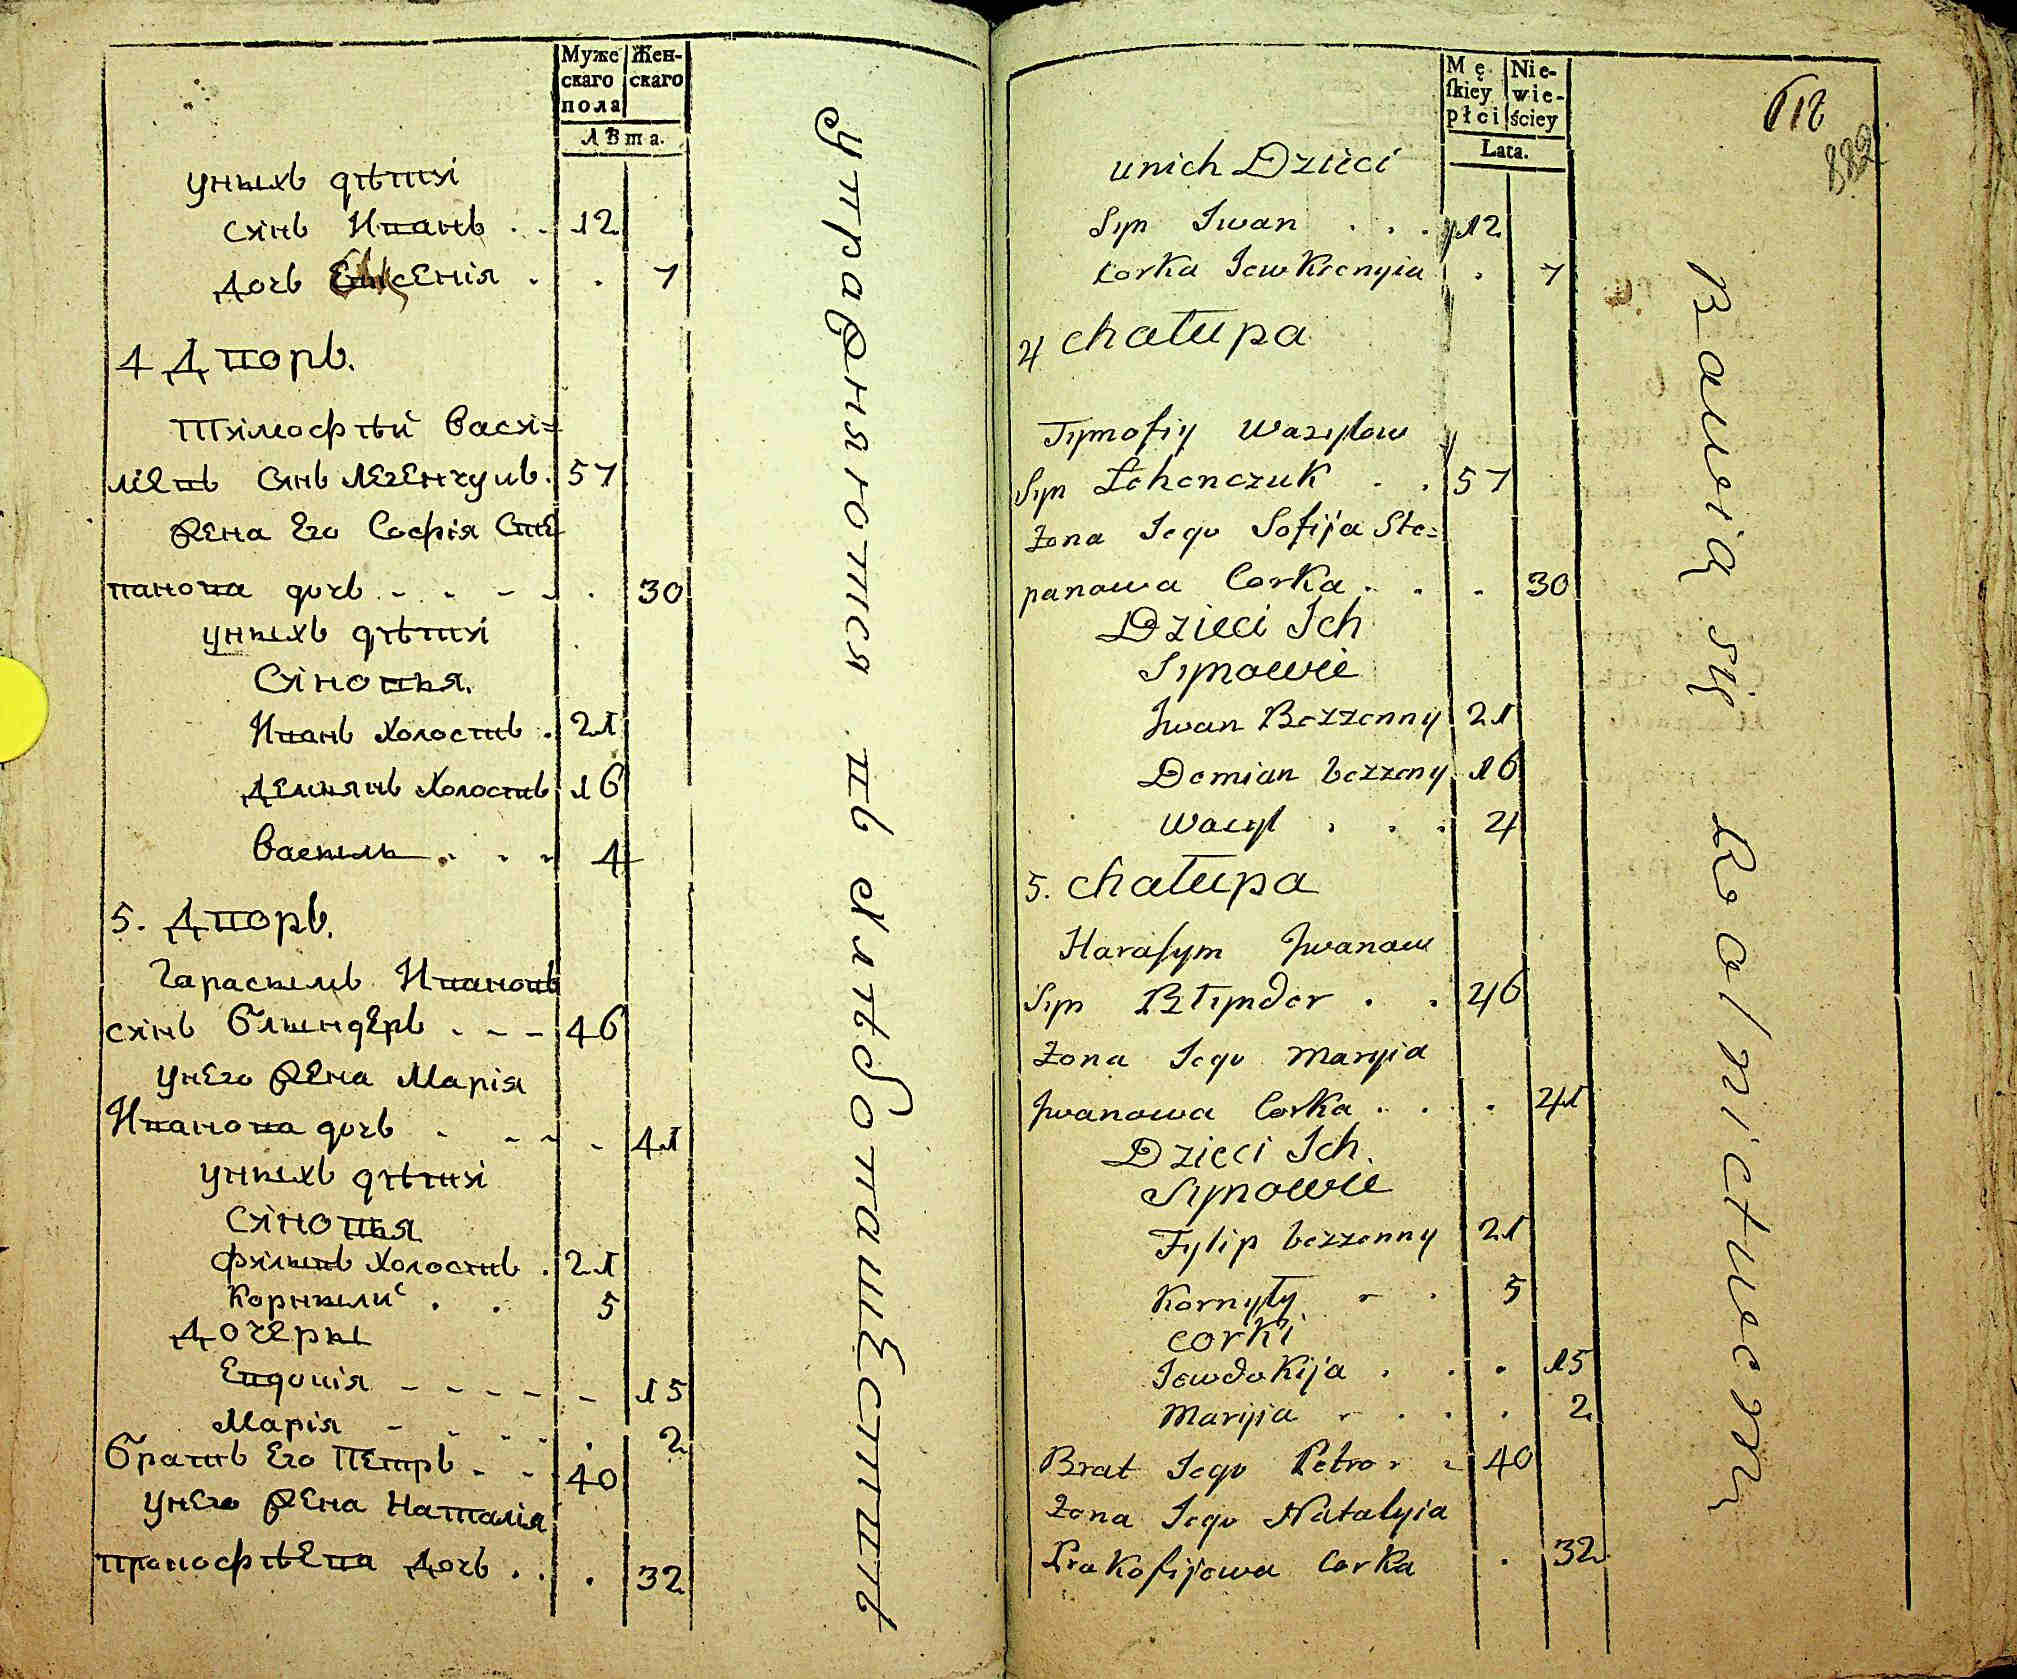 Муже
скаго
пола
Жен-
скаго
Лѣта.
унихъ дѣти
синъ Иванъ . . 12
дочь Евксенія . . 7
4 Дворъ.
Тимофѣй Васи=
лievъ синъ Легенчукъ. 57
жена Его Софія Сте
панова дочь - - - - . 30
унихъ дѣти
Синовья.
Иванъ холостъ . 21
Демянъ холостъ 16
Василь . . . 4
5. Дворъ.
Гарасимъ Ивановъ
синъ блындеръ . - - 46
унего жена Марія
Иванова дочь . - - . 41
унихъ дѣти
Синовья
Филипъ холостъ . 21
Корнилий . . 5
Дочери
Евдокія - - - - - - 15
Марія - - - - . 2
братъ Его Петръ - - 40
унего жена Наталія
прокофѣева дочь . . . 32
упражняются въ хлѣбопашестве
Mę
ſkiey
płci
Nie-
wie-
ściey
Lata.
612
882
unich Dzieci
Syn Iwan . . . 12
Corka Jewksenyia . 7
4 chałupa
Tymofiy Wazylow
Syn Lehenczuk . . 57
Żona Jego Sofija Ste=
panowa Corka . . . 30
Dzieci Ich
Synowie
Iwan Bezzenny 21
Demian bezzeny 16
Wasyl . . . 4
5. chałupa
Haraſym Iwanow
Syn Błynder . . 46
Żona Jego Maryia
Iwanowa Corka . . . 41
Dzieci Ich.
Synowie
Fylip bezzenny 21
Kornyły - . 5
corki
Jewdokija . . . 15
Maryia - . . . 2
Brat Jego Petro . - 40
Żona Jego Natalyia
Prakofijowa Corka . 32
Bawią się Rolnictwem